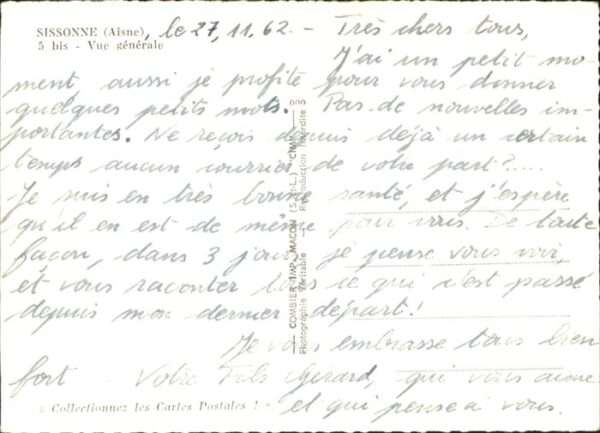 SISSONNE (Aisne), le 27, 11. 62. - Très chers tous,
5 bis - Vue générale
J'ai un petit mo-
ment aussi je profite pour vous donner
quelques petits mots. Pas de nouvelles im-
portantes. Ne reçois depuis déjà un certain
temps aucun courrier de votre part?.....
Je suis en très bonne santé, et j'espère
qu'il en est de même pour vous. De toute
façon, dans 3 jours je pense vous voir,
et vous raconter tous ce qui c'est passé
depuis mon dernier départ!
Je vous embrasse tous bien
fort - Votre Fils Gérard, qui vous aime
et qui pense à vous.
« Collectionnez les Cartes Postales ! »
COMBIER IMP. MACON (S.-&-L.) "CIM"
Photographie Véritable - Reproduction Interdite